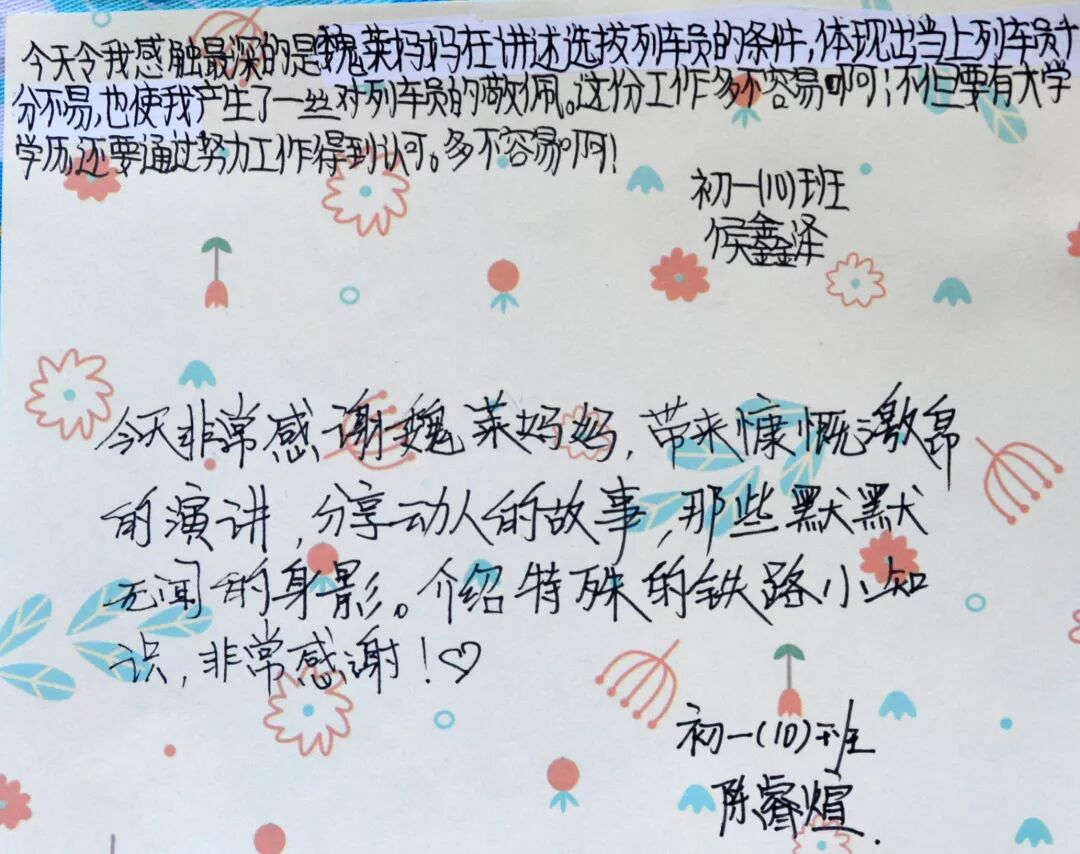 今天令我感触最深的是魏莱妈妈在讲述选拔列车员的条件,体现出当上列车员十
分不易,也使我产生了一丝对列车员的敬佩。这份工作多不容易啊!不但要有大学
学历,还要通过努力工作得到认可。多不容易啊!
初一(10)班
侯鑫泽
今天非常感谢魏莱妈妈,带来慷慨激昂
的演讲,分享动人的故事,那些默默
无闻的身影。介绍特殊的铁路小知
识,非常感谢!♡
初一(10)班
陈睿煊.